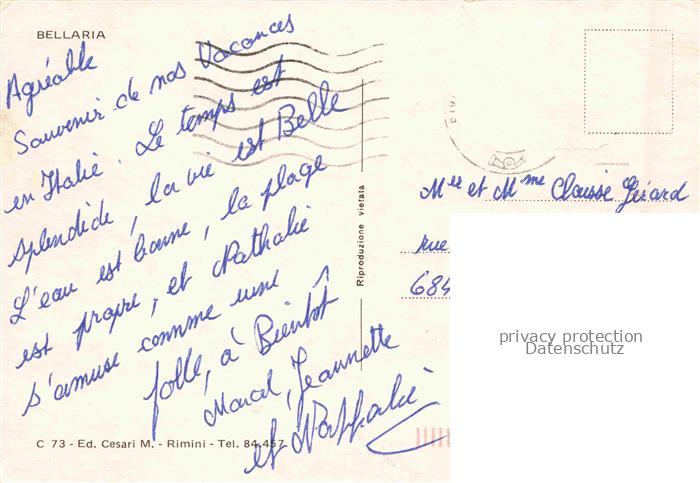 BELLARIA
Agréable
Souvenir de nos Vacances
en Italie. Le temps est
splendide, la vie est Belle
L'eau est bonne, la plage
est propre, et Nathalie
s'amuse comme une
folle, à Bientôt
Marcel, Jeannette
et Nathalie
C 73 - Ed. Cesari M. - Rimini - Tel. 84.457
Riproduzione vietata
Mr et Mme Clausse Gérard
rue
684
privacy protection
Datenschutz